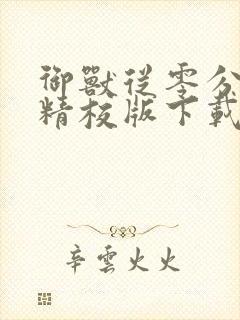 御獸從零分
精校版下載
辛雲火火